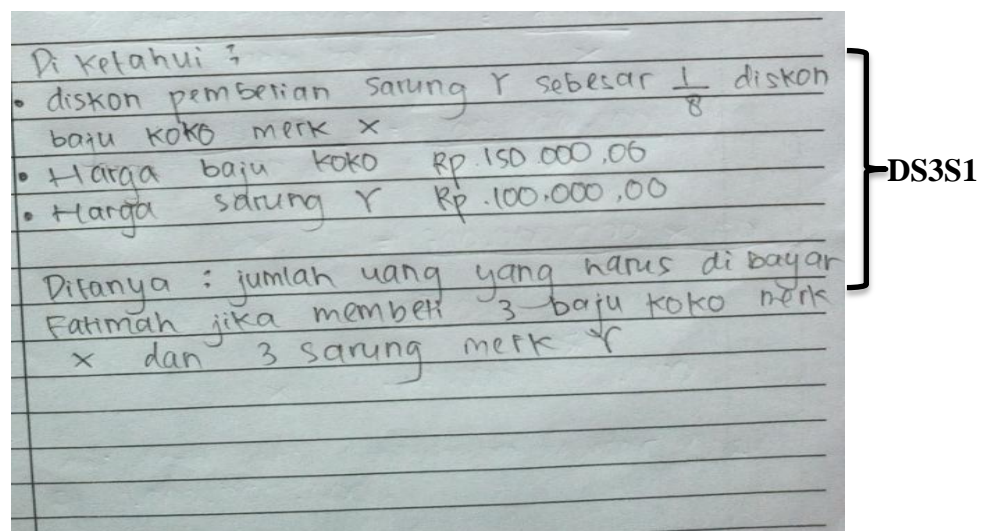 Di ketahui :
• diskon pembelian sarung Y sebesar 1/8 diskon
baju koko merk X
• Harga baju koko Rp.150.000,00
• Harga sarung Y Rp.100.000,00
Ditanya : jumlah uang yang harus di bayar
Fatimah jika membeli 3 baju koko merk
X dan 3 sarung merk Y
DS3S1